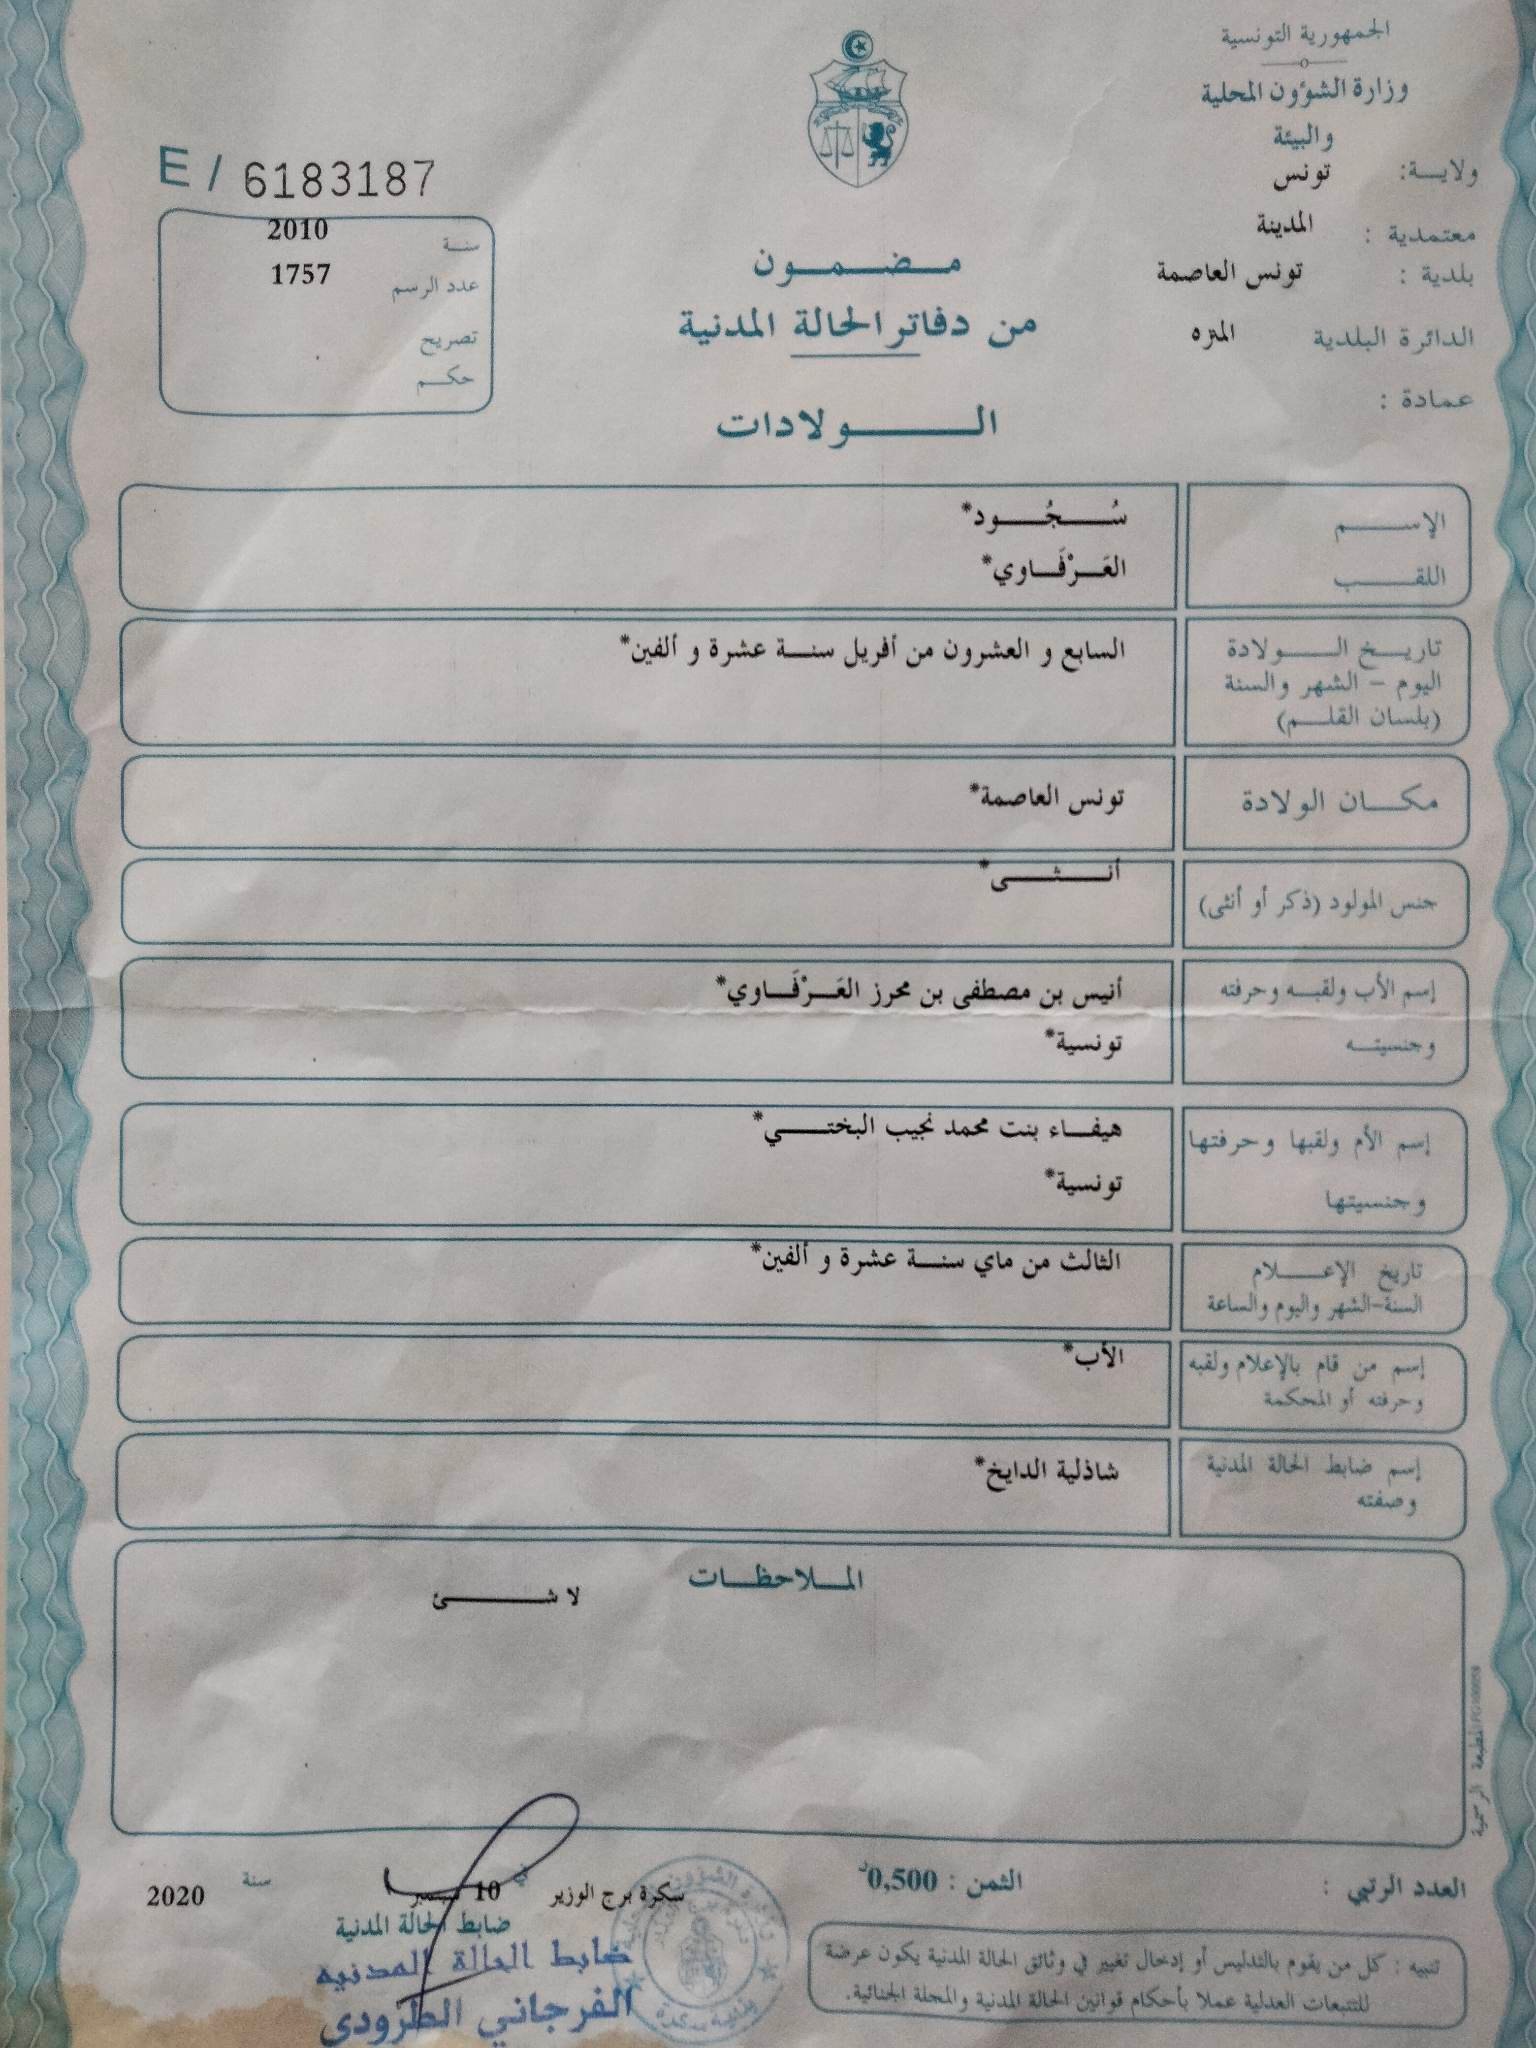 الجمهورية التونسية
وزارة الشؤون المحلية
والبيئة
ولايـــة: تونس
معتمدية : المدينة
بلدية : تونس العاصمة
الدائرة البلدية المنزه
عمادة :
E / 6183187
سنـــة 2010
عدد الرسم 1757
تصريح
حكـــم
مـــضـــمـــون
من دفاتر الحالة المدنية
الـــولادات
الإســـم سُـــجُـــود*
اللقـــب العَـــرْفَـــاوي*
تاريـــخ الـــولادة السابع و العشرون من أفريل سنـــة عشرة و ألفين*
اليوم – الشهر والسنة
(بلسان القلـــم)
مكـــان الولادة تونس العاصمة*
جنس المولود (ذكر أو أنثى) أنـــثـــى*
إسم الأب ولقبـــه وحرفته أنيس بن مصطفى بن محرز العَـــرْفَـــاوي*
وجنسيتـــه تونسية*
إسم الأم ولقبها وحرفتها هيفـــاء بنت محمد نجيب البختـــي*
وجنسيتها تونسية*
تاريخ الإعـــلام الثالث من ماي سنـــة عشرة و ألفين*
السنة-الشهر واليوم والساعة
إسم من قام بالإعلام ولقبه الأب*
وحرفته أو المحكمة
إسم ضابط الحالة المدنية شاذلية الدايخ*
وصفته
المـــلاحظـــات
لا شـــئ
المطبعة الرسمية
العدد الرتبي :
الثمن : 0,500د
سكرة برج الوزير في 10 سنة 2020
ضابط الحالة المدنية
ضابط الحالة المدنية
الفرجاني الطرودي
تنبيه : كل من يقوم بالتدليس أو إدخال تغيير في وثائق الحالة المدنية يكون عرضة
للتتبعات العدلية عملا بأحكام قوانين الحالة المدنية والمجلة الجنائية.